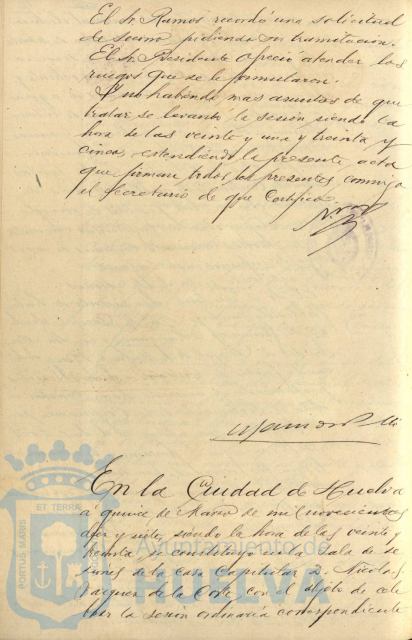 El Sr. Ramos recordó una solicitud
de socorro pidiendo su tramitacion.
El Sr. Presidente ofreció atender los
ruegos que se le formularon.
Y no habiendo mas asuntos de que
tratar se levantó la sesión siendo la
hora de las veinte y una y treinta y
cinco, estendiendo la presente acta
que firman todos los presentes conmigo
el Secretario de que Certifico.
En la Ciudad de Huelva
á quince de Marzo de mil novecientos
diez y siete, siendo la hora de las veinte y
treinta, se constituyó en la Sala de se-
siones de la Casa Capitular D. Nicolas
Vazquez de la Corte con el objeto de cele-
brar la sesión ordinaria correspondiente
PORTUS MARIS
ET TERRAE
Ayuntamiento de
HUELVA